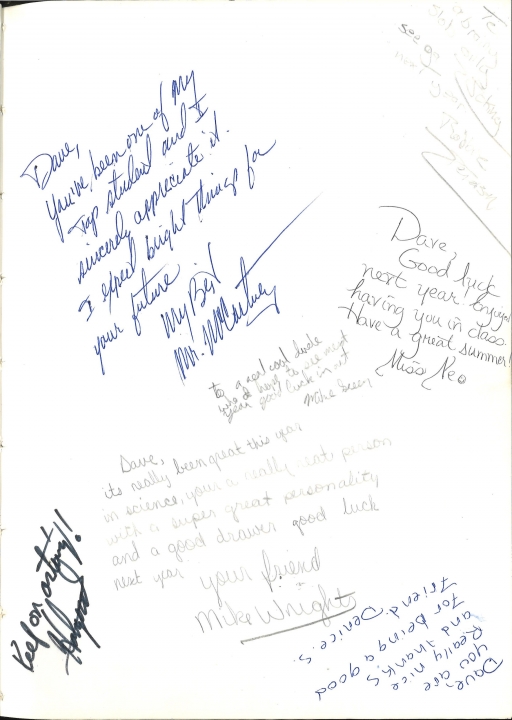 Dave,
You've been one of my
Top student and I
sincerely appreciate it.
I expect bright things for
your future
My Best
Mr. McCartney
Dave,
Good luck
next year! Enjoyed
having you in class.
Have a great summer!
Miss Neo
to a real cool dude
good luck in
Mike
Dave,
its really been great this year
in science, your a really neat person
with a super great personality
and a good drawer good luck
next year
your friend
Mike Wright
Keep on arting!!
Dave,
you are
Really nice
and thanks
for being a good
friend. Denice. S.
To
a brainy
see ya
next year